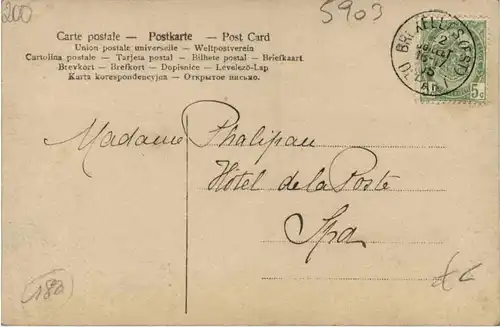 200
5903
Carte postale — Postkarte — Post Card
Union postale universelle — Weltpostverein
Cartolina postale — Tarjeta postal — Bilhete postal — Briefkaart
Brevkort — Brefkort — Dopisnice — Levelező-Lap
Karta korespondencyjna — Открытое письмо.
BRUXELLES (EST)
2
JUILLET
5c
Madame Phalipau
Hôtel de la Poste
Spa
180